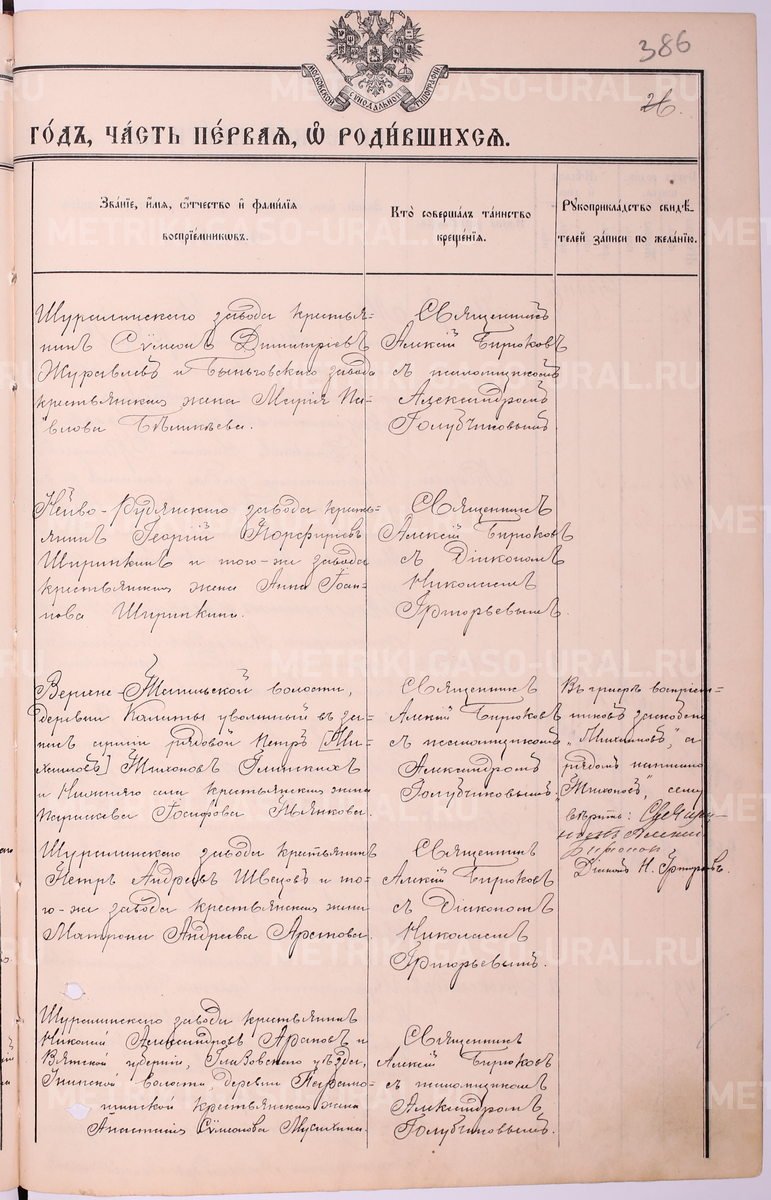 386
26.
МОСКОВСКОЙ СѴНОДАЛЬНОЙ ТИПОГРАФІИ
ГОДЪ, ЧАСТЬ ПЕРВАЯ, Ѽ РОДИВШИХСЯ.
Званіе, имя, отчество и фамилія
воспріемниковъ.
Кто совершалъ таинство
крещенія.
Рукоприкладство свидѣ-
телей записи по желанію.
Шуралинскаго завода крестья-
нинъ Сѵмеонъ Димитріевъ
Журавлевъ и Быньговскаго завода
крестьянская жена Марія Па-
влова
Священникъ
Алексій Бирюковъ
съ псаломщикомъ
Александромъ
Голубчиковымъ
Нейво-Рудянскаго завода кресть-
янинъ Георгій Порфиріевъ
Ширинкинъ и того-же завода
крестьянская жена Анна Іоан-
нова Ширинкина.
Священникъ
Алексій Бирюковъ
съ Діакономъ
Николаемъ
Григорьевымъ.
Верхне-Тагильской волости,
деревни Калаты уволенный въ за-
пасъ арміи рядовой Петръ [Ми-
хаиловъ] Тихоновъ
и Нижняго села крестьянская жена
Параскева Іосифова
Священникъ
Алексій Бирюковъ
съ псаломщикомъ
Александромъ
Голубчиковымъ.
Въ графѣ воспріем-
никовъ зачеркнуто
„Михаиловъ“, а
рядомъ написано
„Тихоновъ“, сему
вѣрить: Священ-
никъ Алексій
Бирюковъ
Діаконъ Н. Григорьевъ.
Шуралинскаго завода крестьянинъ
Петръ Андреевъ Швецовъ и то-
го-же завода крестьянская жена
Матрона Андреева Арапова.
Священникъ
Алексій Бирюковъ
съ Діакономъ
Николаемъ
Григорьевымъ.
Шуралинскаго завода крестьянинъ
Николай Александровъ Араповъ и
Вятской губерніи, Глазовскаго уѣзда,
волости, деревни
крестьянская жена
Анастасія Сѵмеонова
Священникъ
Алексій Бирюковъ
съ псаломщикомъ
Александромъ
Голубчиковымъ.
METRIKI.GASO-URAL.RU